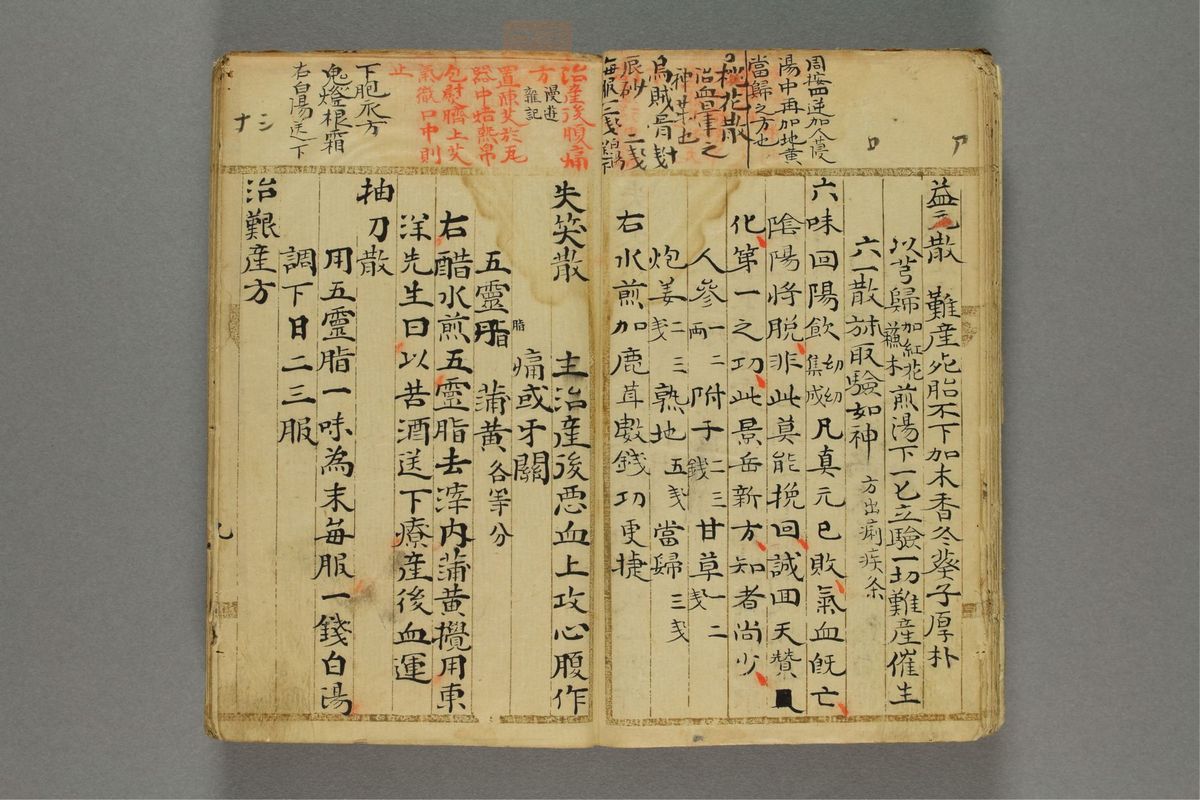 周按四逆加人葠
湯中再加地黄
當歸之方也
桃花散
治血暈之
神某也
烏賊骨 戔
辰砂 二戔
每服二戔
益元散 難産死胎不下加木香冬葵子厚朴
以芎歸加紅花蘇木煎湯下一匕立驗一切難産催生
六一散並取驗如神 方出痢疾条
六味回陽飲 幼幼集成 凡真元已敗氣血既亡
陰陽将脱非此莫能挽回誠回天賛
化第一之功此景岳新方知者尚少
人參 一二両 附子 二三錢 甘草 一二戔
炮姜 二三戔 熟地 五戔 當歸 三戔
右水煎加鹿茸數錢功更捷
治産後腹痛
方 漫遊雜記
置陳艾於瓦
器中焙熱帛
包慰臍上艾
氣徹口中則
止
下胞衣方
鬼燈根霜
右白湯送下
失笑散 主治産後悪血上攻心腹作
痛或牙關
五靈脂 脂 蒲黄 各等分
右醋水煎五靈脂去滓内蒲黄攪用東
洋先生曰以苦酒送下療産後血運
抽刀散
用五靈脂一味為末毎服一錢白湯
調下日二三服
治難産方